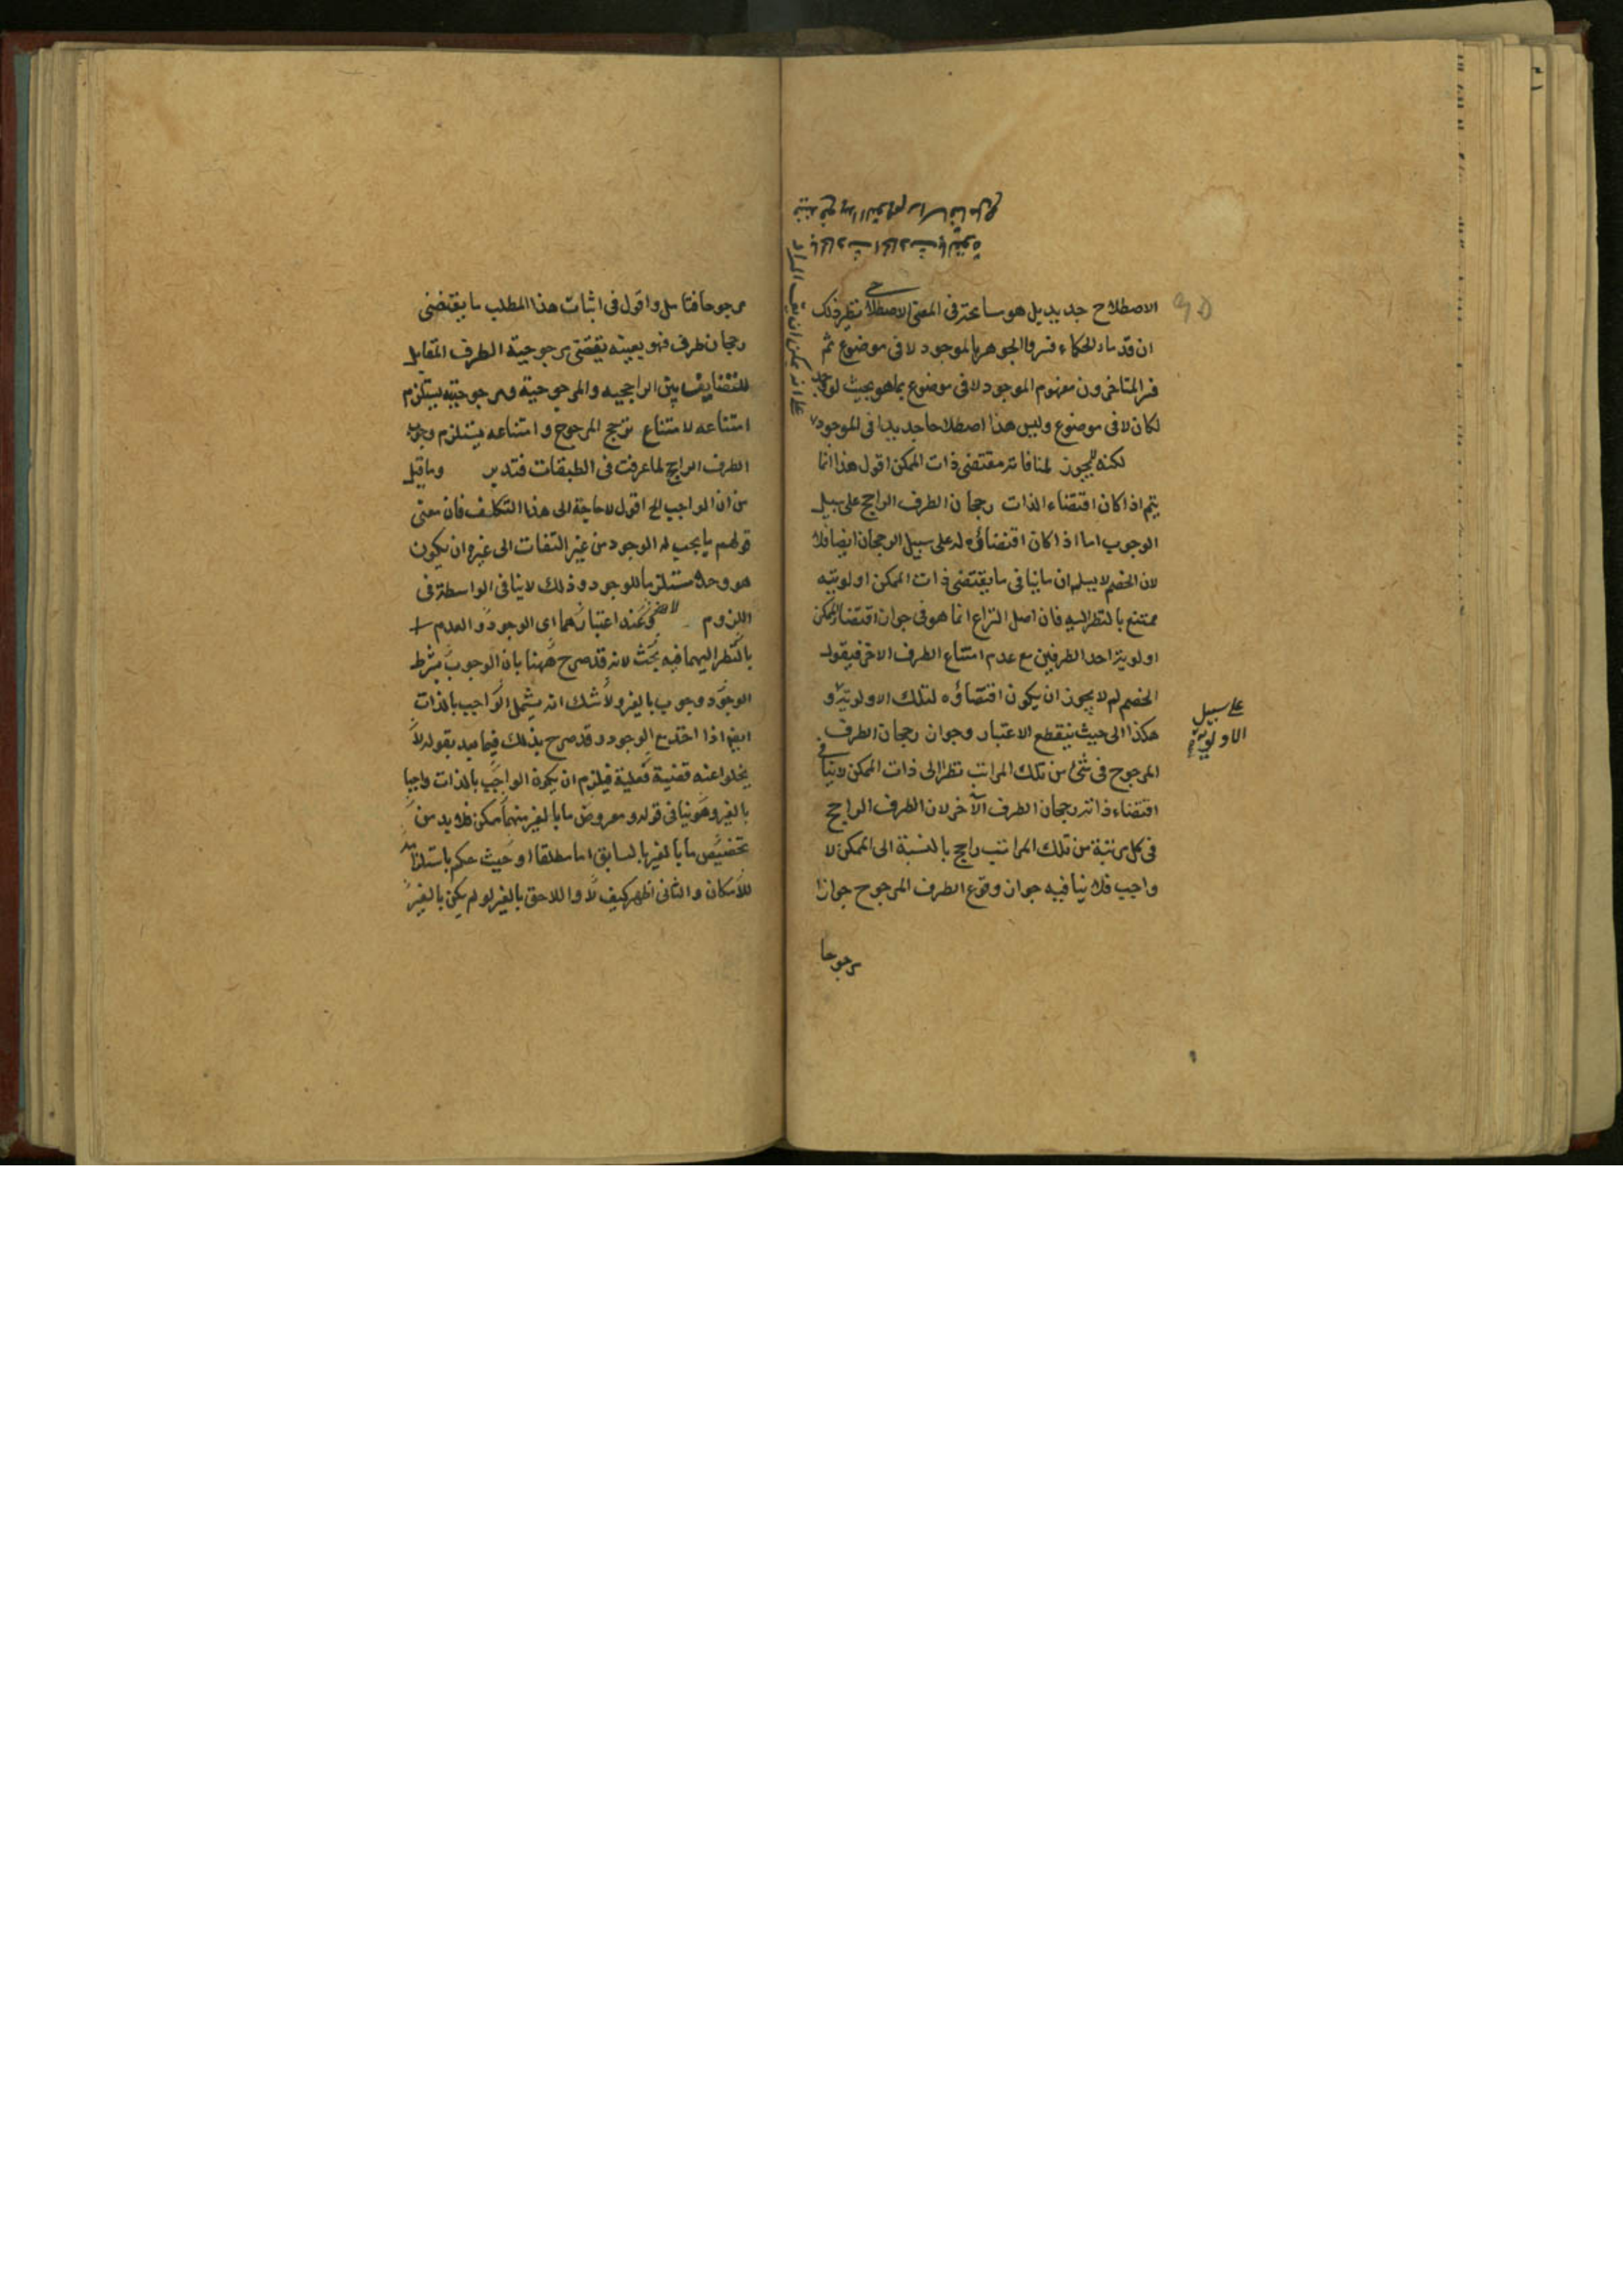 الاصطلاح جديد بل هو مسامحة فى المعنى الاصطلاحى نظير ذلك
ان قدماء الحكماء فسروا الجوهر بالموجود لا فى موضوع ثم
فسر المتاخرون مفهوم الموجود لا فى موضوع بما هو بحيث لو وجد
لكان لا فى موضوع وليس هذا اصطلاحا جديدا فى الموجود
لكنه لمنافاته مقتضى ذات الممكن اقول هذا انما
يتم اذا كان اقتضاء الذات رجحان الطرف الراجح على سبيل
الوجوب اما اذا كان اقتضاؤه له على سبيل الرجحان ايضا فلا
لان الخصم لا يسلم ان ما ينافى ما يقتضى ذات الممكن اولويته
ممتنع بالنظر اليه فان اصل النزاع انما هو فى جواز اقتضاء الممكن
اولوية احد الطرفين مع عدم امتناع الطرف الاخر فيقول
الخصم لم لا يجوز ان يكون اقتضاؤه لتلك الاولوية و
على سبيل
الاولوية
هكذا الى حيث ينقطع الاعتبار وجواز رجحان الطرف
المرجوح فى شئ من تلك المراتب نظرا الى ذات الممكن لا ينافى
اقتضاء ذاته رجحان الطرف الآخر لان الطرف الراجح
فى كل مرتبة من تلك المراتب راجح بالنسبة الى الممكن لا
واجب فلا ينافيه جواز وقوع الطرف المرجوح جوازا
مرجوحا
على انه يمكن ان يقال المراد
مرجوحا فتامل واقول فى اثبات هذا المطلب ما يقتضى
رجحان طرف فهو بعينه يقتضى مرجوحية الطرف المقابل
للتضايف بين الراجحيه والمرجوحية ومرجوحيته يستلزم
امتناعه لامتناع ترجح المرجوح و امتناعه يستلزم وجوب
الطرف الراجح لما عرفت فى الطبقات فتدبر وما قيل
من ان الواجب الخ اقول لا حاجة الى هذا التكلف فان معنى
قولهم ما يجب له الوجود من غير التفات الى غيره ان يكون
هو وحده مستلزما للوجود وذلك لا ينافى الواسطة فى
اللزوم وعند اعتبارهما اى الوجود والعدم
بالنظر اليهما فيه بحث لانه قد صرح ههنا بان الوجوب بشرط
الوجود وجوب بالغير ولا شك انه يشمل الواجب بالذات
ايضا اذا اخذ مع الوجود وقد صرح بذلك فيما بعد بقوله لا
يخلو عنه قضية فعلية فيلزم ان يكون الواجب بالذات واجبا
بالغير وهو ينافى قوله ومعروض ما بالغير منهما ممكن فلا بد من
تخصيص ما بالغير بالسابق اما مطلقا او حيث حكم باستلزامه
للامكان والثانى اظهر كيف لا واللاحق بالغير لو لم يكن بالغير